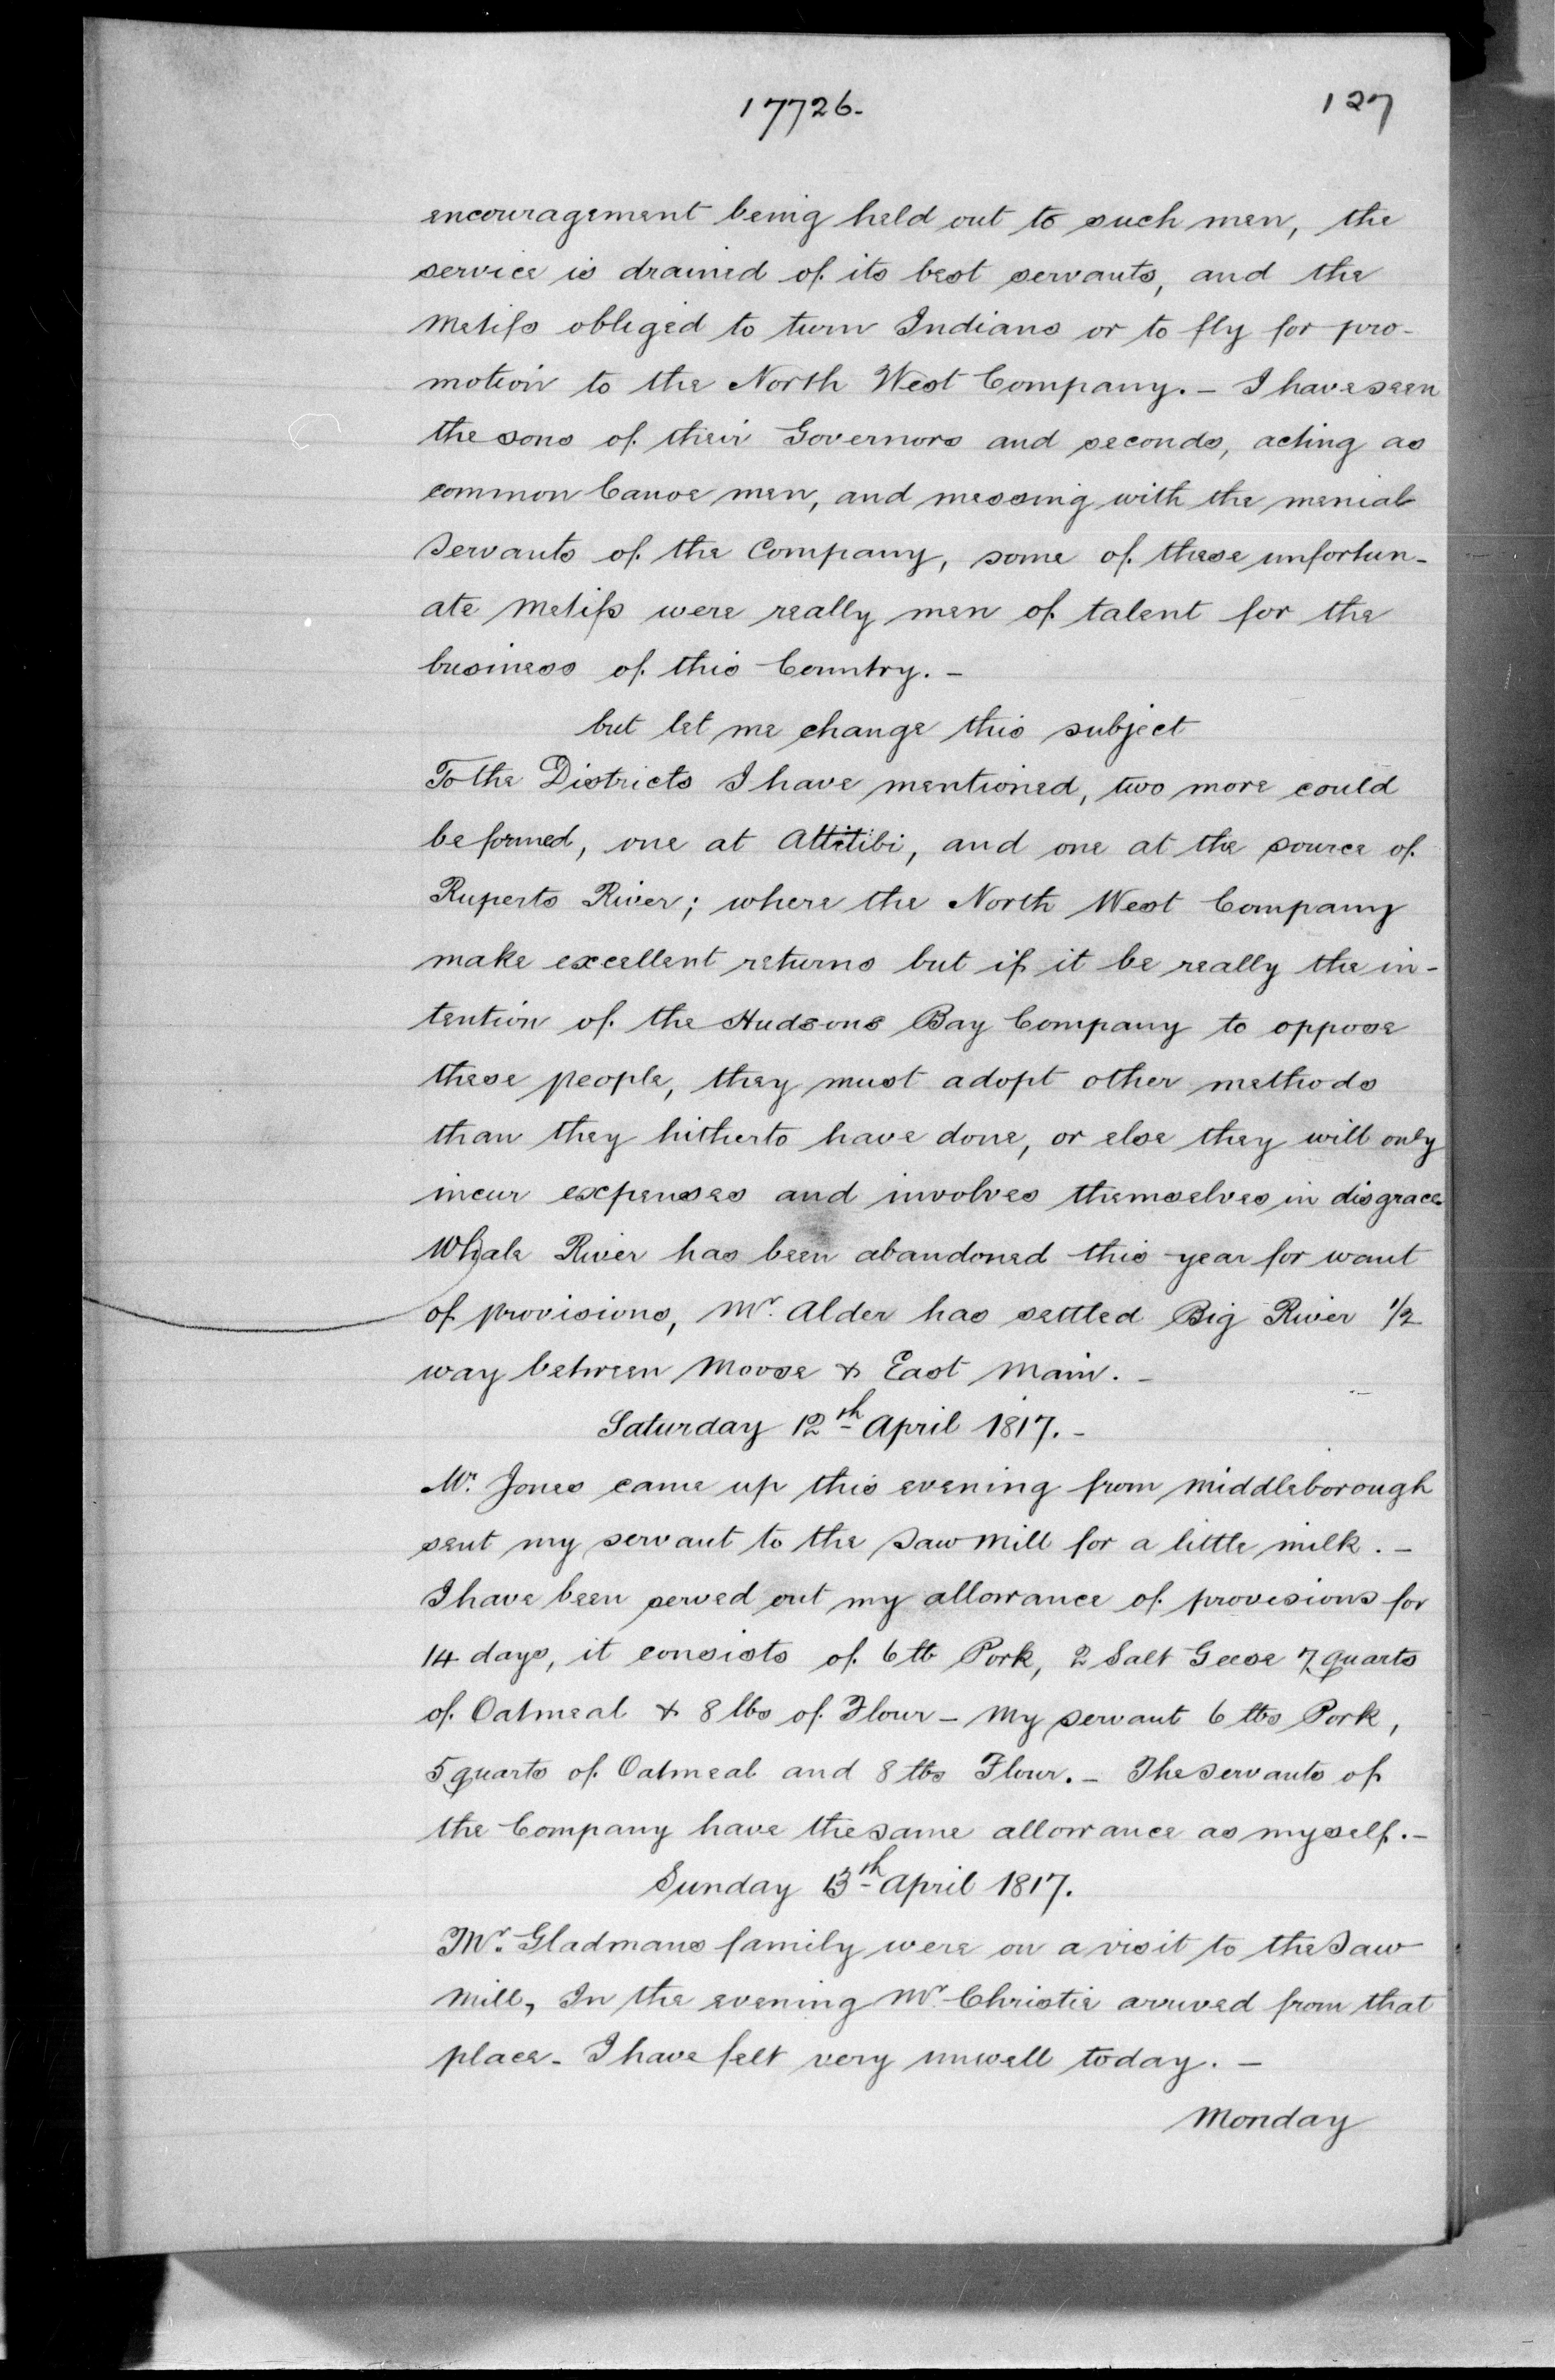 17726-
127
encouragement being held out to such men, the
service is drained of its best servants, and the
Metifs obliged to turn Indians or to fly for pro-
motion to the North West Company. - I have seen
the sons of their Governors and seconds, acting as
common Canoe men, and messing with the menial
servants of the Company, some of these unfortun-
ate Metifs were really men of talent for the
business of this Country. -
but let me change this subject
To the Districts I have mentioned, two more could
be formed, one at Attitibi, and one at the source of
Ruperts River; where the North West Company
make excellent returns but if it be really the in-
tention of the Hudsons Bay Company to oppose
these people, they must adopt other methods
than they hitherto have done, or else they will only
incur expenses and involves themselves in disgrace.
Whale River has been abandoned this year for want
of provisions, Mr. Alder has settled Big River 1/2
way between Moose & East Main. -
Saturday 12th April 1817. -
Mr. Jones came up this evening from Middleborough
sent my servant to the Saw Mill for a little milk. -
I have been served out my allowance of provisions for
14 days, it consists of 6 lb Pork, 2 Salt Geese 7 quarts
of Oatmeal & 8 lbs of Flour - My servant 6 lbs Pork,
5 quarts of Oatmeal and 8 lbs Flour. - The servants of
the Company have the same allowance as myself. -
Sunday 13th April 1817.
Mr. Gladmans family were on a visit to the Saw
Mill, In the evening Mr. Christie arrived from that
place - I have felt very unwell today. -
Monday